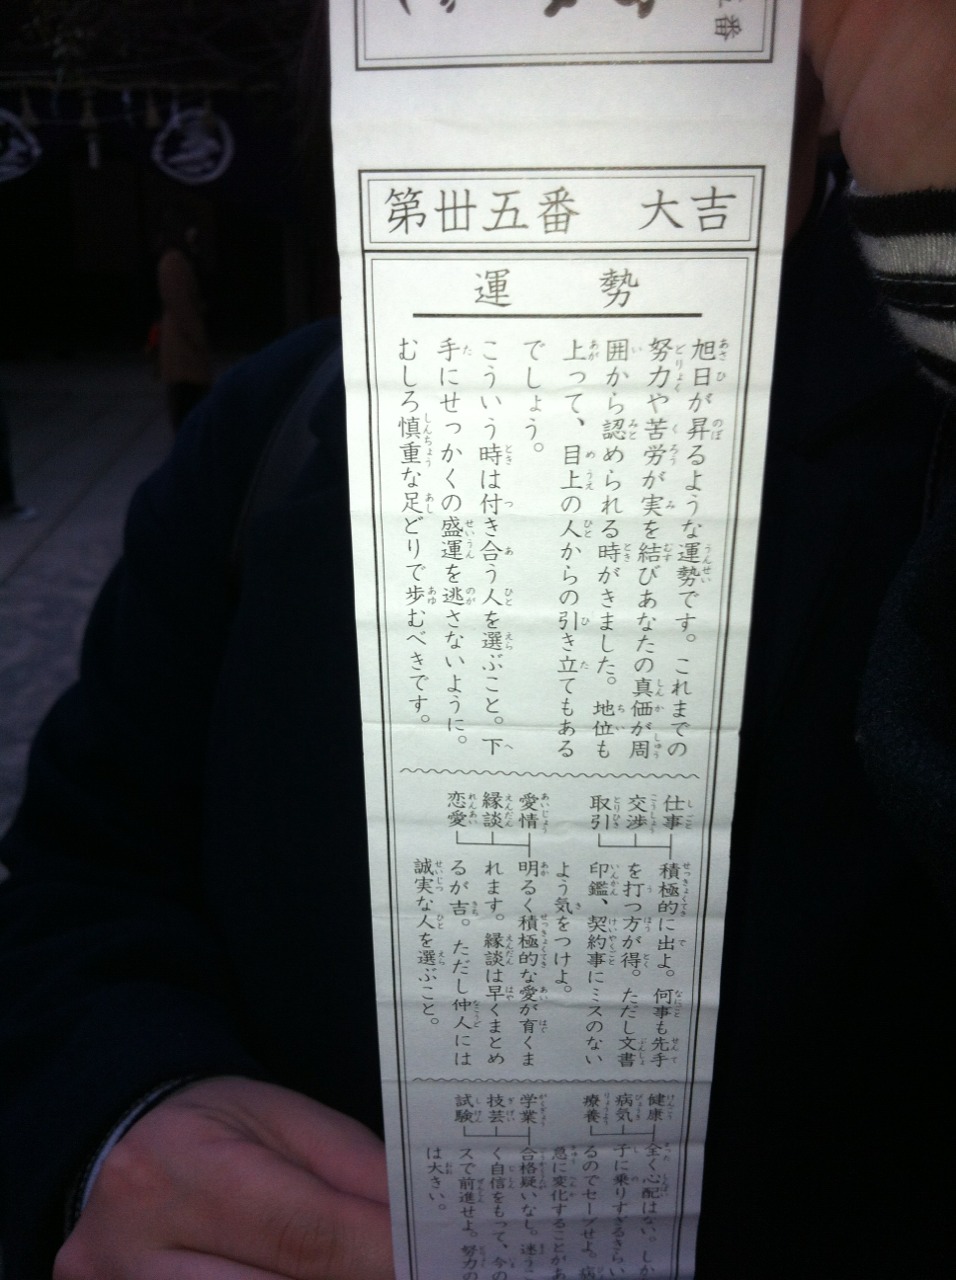 番
第丗五番　大吉
運　勢
旭日が昇るような運勢です。これまでの
努力や苦労が実を結びあなたの真価が周
囲から認められる時がきました。地位も
上って、目上の人からの引き立てもある
でしょう。
こういう時は付き合う人を選ぶこと。下
手にせっかくの盛運を逃さないように。
むしろ慎重な足どりで歩むべきです。
仕事
交渉
取引
積極的に出よ。何事も先手
を打つ方が得。ただし文書
印鑑、契約事にミスのない
よう気をつけよ。
愛情
縁談
恋愛
明るく積極的な愛が育くま
れます。縁談は早くまとめ
るが吉。ただし仲人には
誠実な人を選ぶこと。
健康
病気
療養
全く心配はない。しか
子に乗りすぎるきらい
るのでセーブせよ。病
急に変化することがあ
学業
技芸
試験
合格疑いなし。迷うこ
く自信をもって、今の
スで前進せよ。努力の
は大きい。